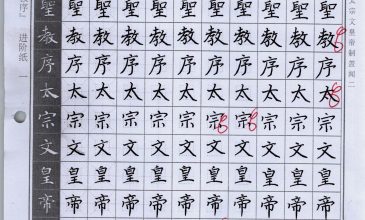 聖聖聖聖聖聖聖聖聖聖聖
教教教教教教教教教教教
序序序序序序序序序序序
太太太太太太太太太太太
宗宗宗宗宗宗宗宗宗宗宗
文文文文文文文文文文文
皇皇皇皇皇皇皇皇皇皇皇
帝帝帝帝帝帝帝帝帝帝帝
宗文皇帝制蓋聞二
序》 进阶纸 一